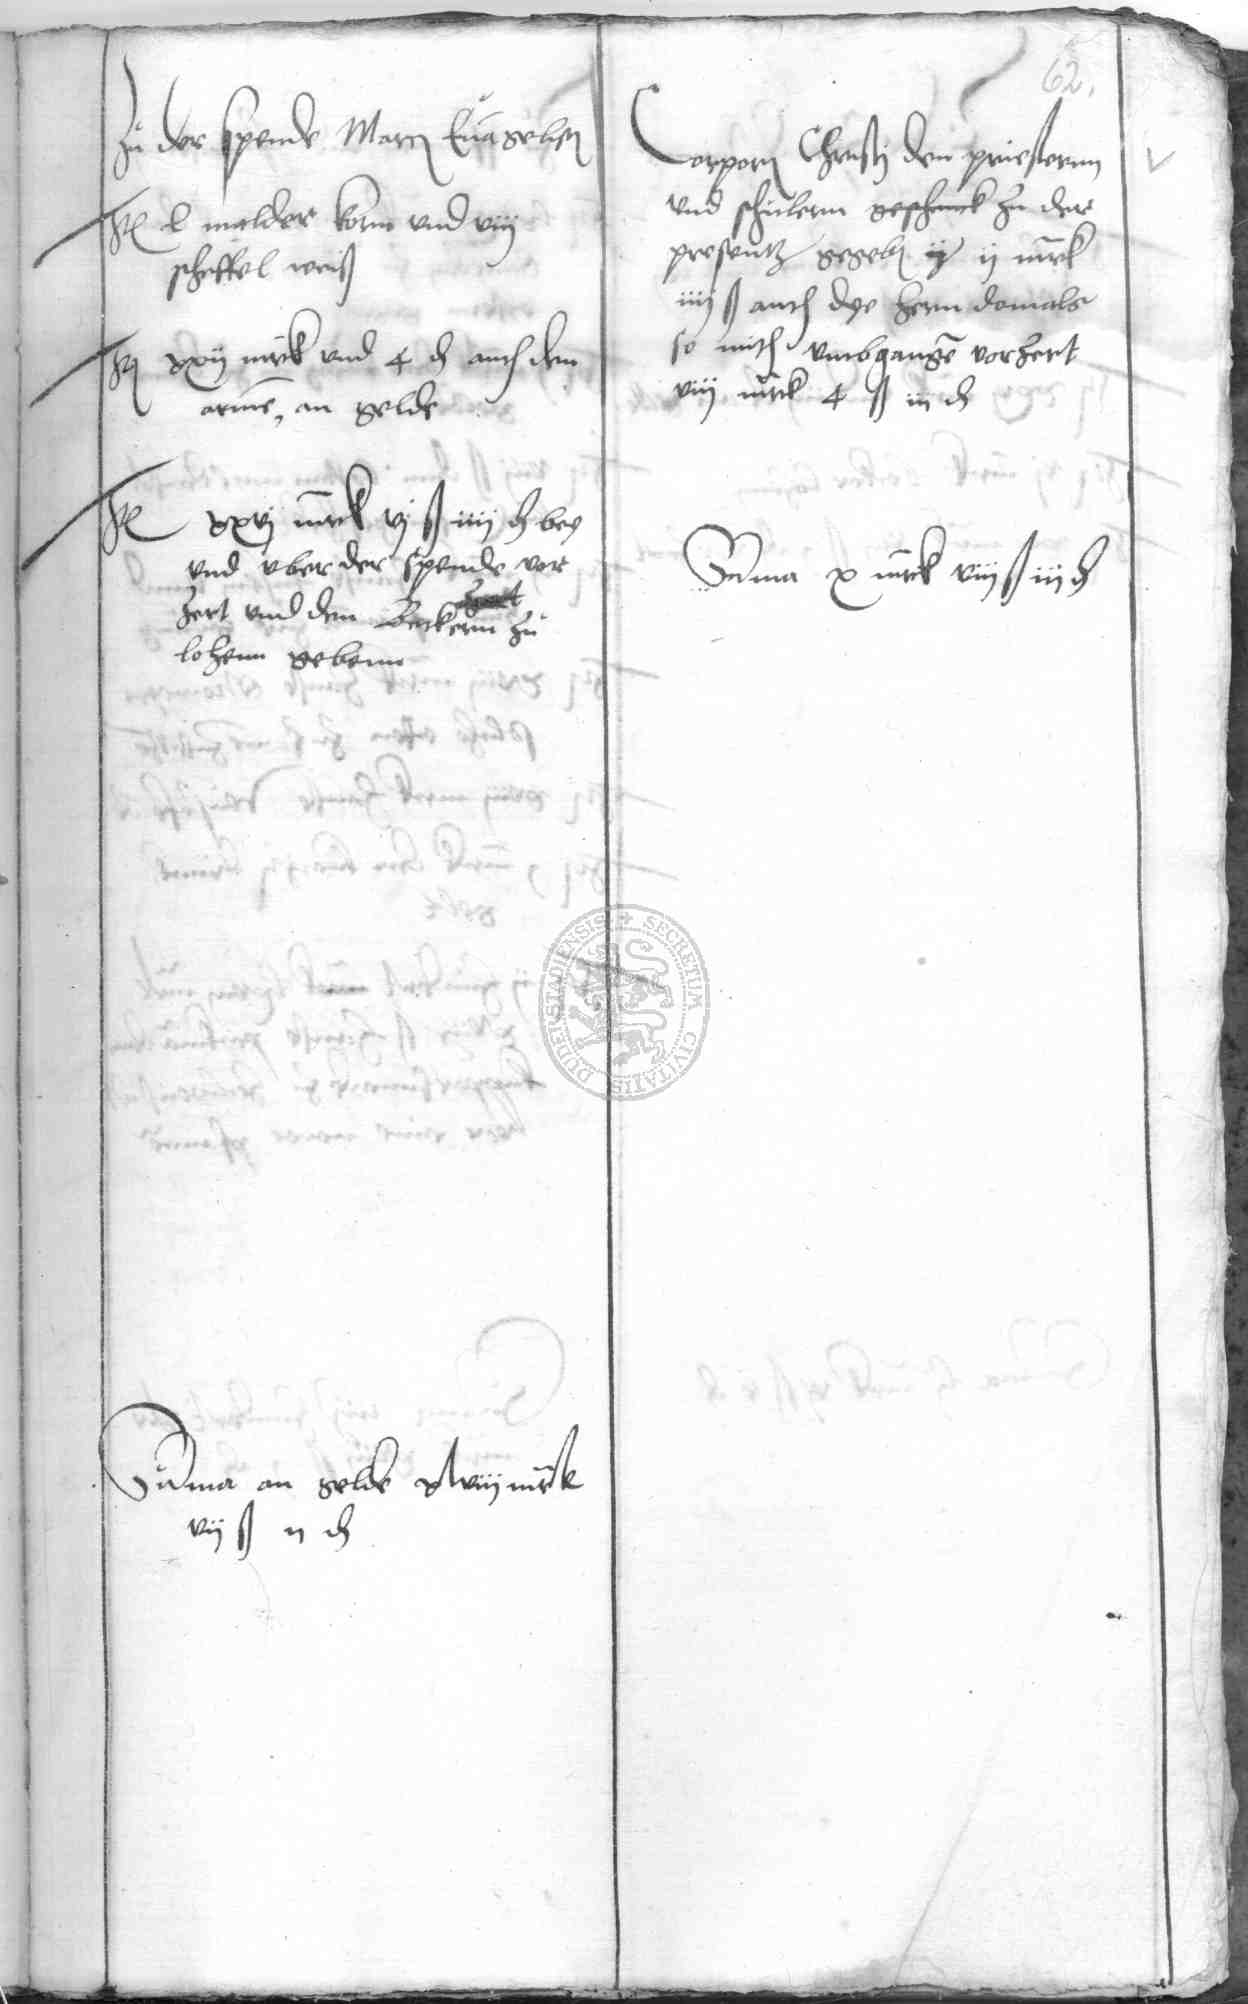 62.
Zu der spende Marci Ewangelisten
It l malder korn vnd viij
scheffel weiß
It xxij marck vnd 4 d auch den
armen an gelde
It xxvj marck vj ß iiij d bey
vnd vber der spende vor
zert vnd den Beckern zu
lohenn gebenn
Suma an gelde xlviij marck
vij ß ij d
Corporis Christi den priesternn
vnd schulernn geschenck zu der
presentz gegeben ij marck
iiij ß auch dye hern domals
so mith vmbgangen vorzert
viij marck 4 ß iij d
Suma x marck viij ß iij d
DUDERSTADIENSIS SECRETUM CIVITATIS